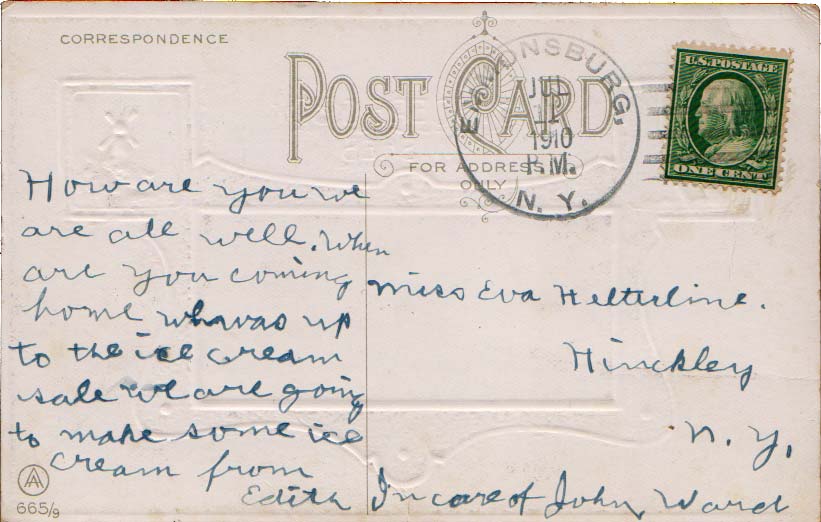 CORRESPONDENCE
POST CARD
FOR ADDRESS
ONLY
NSBURG,
JUL
1910
P.M.
N. Y.
U.S. POSTAGE
ONE CENT
How are you we
are all well. When
are you coming
home who was up
to the ice cream
sale we are going
to make some ice
cream from
Edith
Miss Eva Helterline.
Hinckley
N. Y.
In care of John Ward
AA
665/9